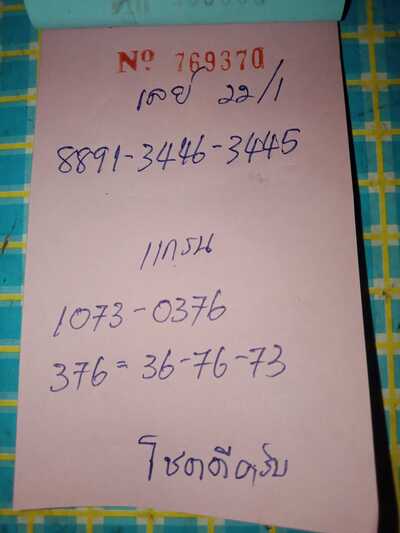 Nº 769370
เลย์ 22/1
8891-3446-3445
แกรน
1073-0376
376 = 36-76-73
โชคดีครับ